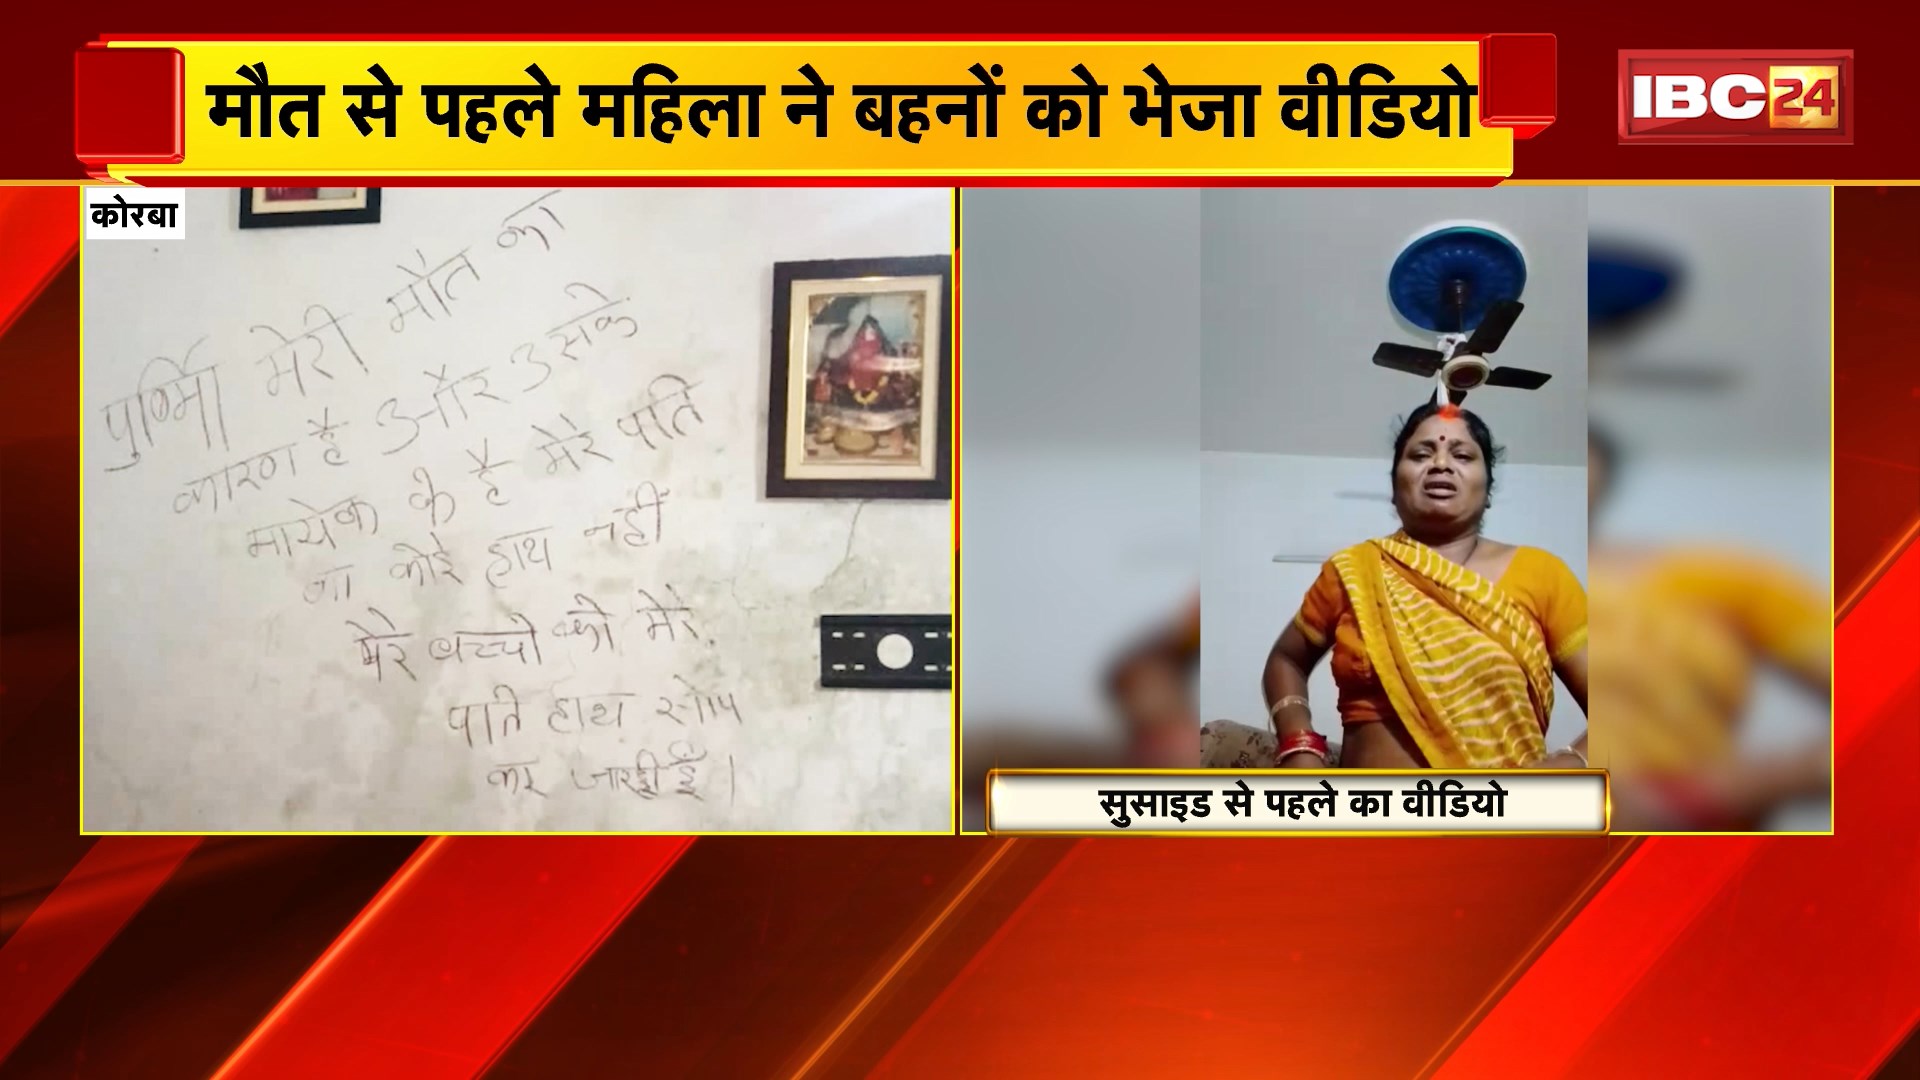 मौत से पहले महिला ने बहनों को भेजा वीडियो
IBC24
कोरबा
पुर्णिमा मेरी मौत का
कारण है और उसके
मायेक के है मेरे पति
का कोई हाथ नहीं
मेरे बच्चो को मेरे
पति हाथ सोप
कर जारही हुँ।
सुसाइड से पहले का वीडियो